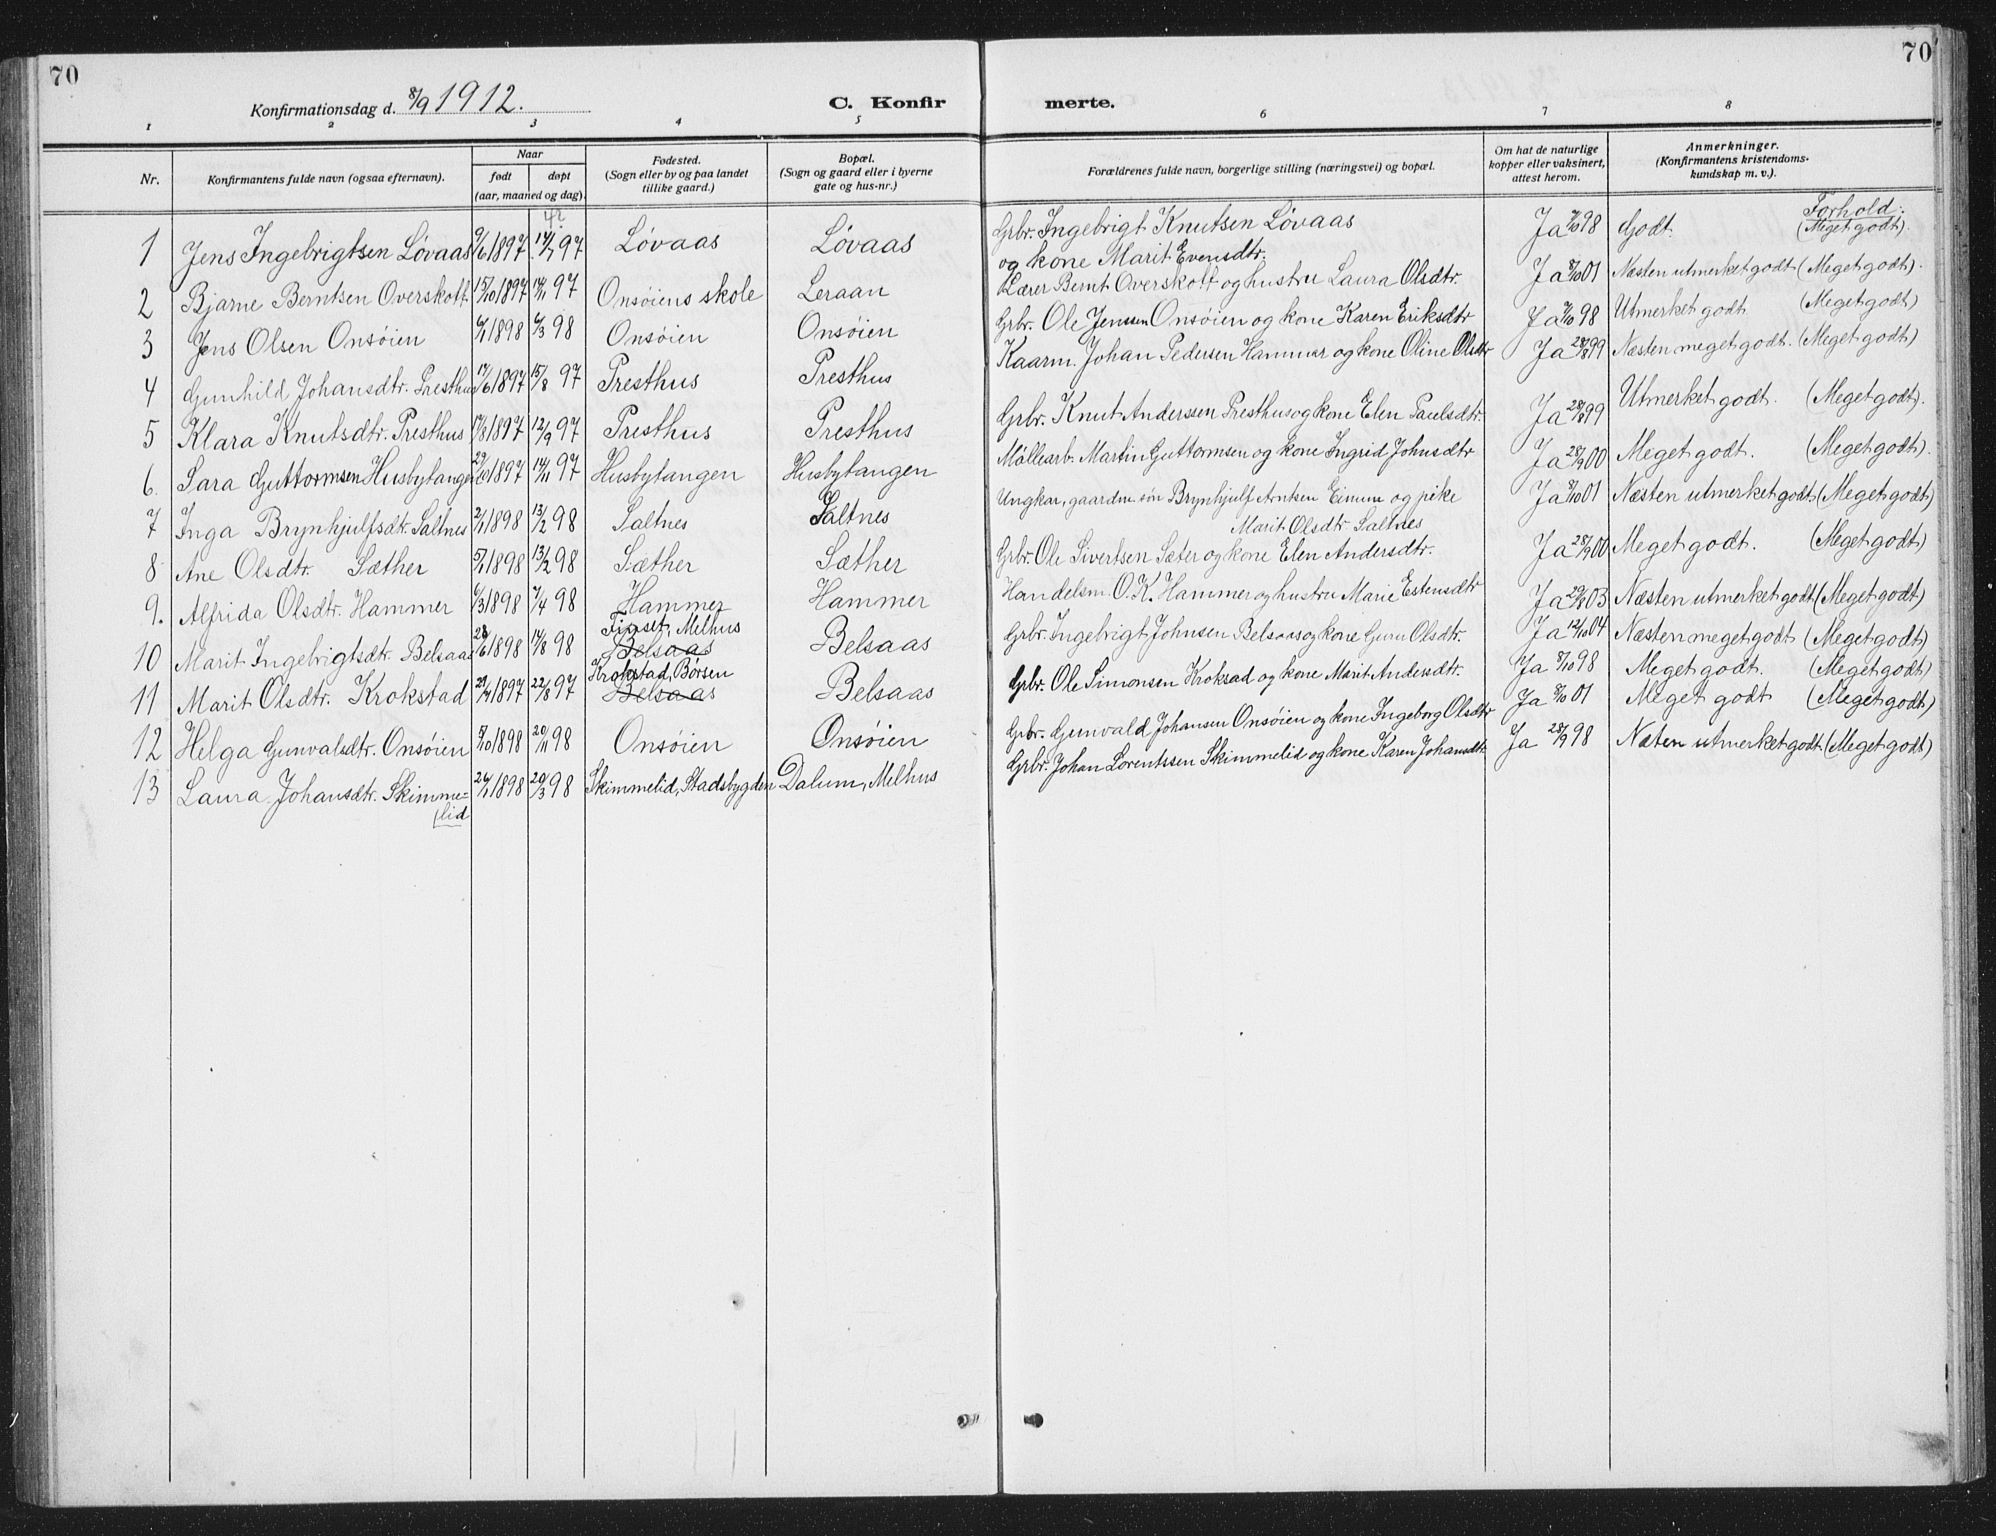 70
70
Konfirmationsdag d. 8/9 1912.
C. Konfir
merte.
1 2 3 4 5 6 7 8
Nr.
Konfirmantens fulde navn (ogsaa efternavn).
Naar
født
døpt
(aar, maaned og dag).
Fødested.
(Sogn eller by og paa landet
tillike gaard.)
Bopæl.
(Sogn og gaard eller i byerne
gate og hus-nr.)
Forældrenes fulde navn, borgerlige stilling (næringsvei) og bopæl.
Om hat de naturlige
kopper eller vaksinert,
attest herom.
Anmerkninger.
(Konfirmantens kristendoms-
kundskap m. v.).
Forhold:
1 Jens Ingebrigtsen Løvaas 9/6 1897 17/7 97 Løvaas Løvaas Grbr. Ingebrigt Knutsen Løvaas Ja 98 Godt. (Meget godt).
og kone Marit Evensdtr.
2 Bjarne Berntsen Overskott. 15/10 1897 14/11 97 Onsøiens skole Leraan Lærer Bernt Overskott og hustru Laura Olsdtr. Ja 8/10 01 Næsten utmerket godt (Meget godt).
3 Jens Olsen Onsøien 6/1 1898 6/3 98 Onsøien Onsøien Grbr. Ole Jenssen Onsøien og kone Karen Eriksdtr Ja 98 Utmerket godt (Meget godt)
4 Gunhild Johansdtr. Presthus 17/6 1897 15/8 97 Presthus Presthus Kaarm. Johan Pedersen Hammer og kone Oline Olsdtr Ja 99 Næsten meget godt. (Meget godt)
5 Klara Knutsdtr. Presthus 17/8 1897 12/9 97 Presthus Presthus Grbr. Knut Anderssen Presthus og kone Elen Paulsdtr. Ja 99 Utmerket godt. (Meget godt).
6. Sara Guttormsen Husbytangen 1897 14/11 97 Husbytangen Husbytangen Møllearb. Martin Guttormsen og kone Ingrid Johnsdtr Ja 28/9 00 Meget godt. (Meget godt).
7 Inga Brynhjulfsdtr. Saltnes 2/1 1898 13/2 98 Saltnes Saltnes Ungkar, gaardm. søn Brynhjulf Arntsen Eimum og pike Ja 8/10 01 Næsten utmerket godt (Meget godt)
Marit Olsdtr Saltnes
8 Ane Olsdtr. Sæther 5/1 1898 13/2 98 Sæther Sæther Grbr. Ole Sivertsen Sæter og kone Elen Andersdtr. Ja 28/9 00 Meget godt. (Meget godt)
9. Alfrida Olsdtr. Hammer 6/3 1898 7/4 98 Hammer Hammer Handelsm. O. K. Hammer og hustru Marie Estensdtr Ja 03 Næsten utmerket godt (Meget godt)
10 Marit Ingebrigtsdtr. Belsaas 1898 14/8 98 Belsaas Melhus Belsaas Grbr. Ingebrigt Johnsen Belsaas og kone Guru Olsdtr. Ja 12/10 04 Næsten meget godt (Meget godt)
11 Marit Olsdtr. Krokstad 1897 22/8 97 Krokstad, Børsen Belsaas Belsaas Grbr. Ole Simonsen Kroksad og kone Marit Andersdtr. Ja 8/10 98 Meget godt. (Meget godt)
12 Helga Gunvalsdtr. Onsøien 5/10 1898 20/11 98 Onsøien Onsøien Grbr. Gunvald Johansen Onsøien og kone Ingeborg Olsdtr Ja 8/10 01 Meget godt (Meget godt)
13 Laura Johansdtr. Skimme= 1898 20/3 98 Skimmelid, Stadsbygden Dalum, Melhus Grbr. Johan Lorentssen Skimmelid og kone Karen Johansdtr. Ja 28/9 98 Næten utmerket godt. (Meget godt)
lid